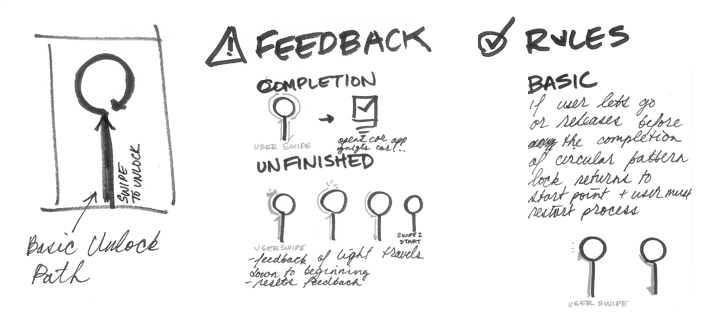 SWIPE
TO UNLOCK
Basic Unlock
Path
FEEDBACK
COMPLETION
USER SWIPE
opens car app
car!..
UNFINISHED
USER SWIPE
SWIPE 2
START
-feedback of light travels
down to beginning
-resets feedback
RULES
BASIC
if user lets go
or releases before
the completion
of circular pattern
lock returns to
start point + user must
restart process
USER SWIPE